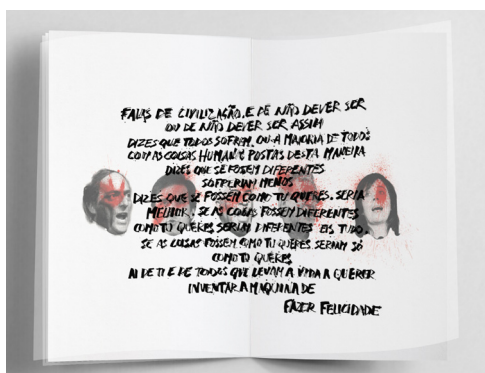 FALAS DE CIVILIZAÇÃO, E DE NÃO DEVER SER
OU DE NÃO DEVER SER ASSIM
DIZES QUE TODOS SOFREM, OU A MAIORIA DE TODOS
COM AS COISAS HUMANAS POSTAS DESTA MANEIRA
DIZES QUE SE FOSSEM DIFERENTES
SOFRERIAM MENOS
DIZES QUE SE FOSSEM COMO TU QUERES, SERIA
MELHOR. SE AS COISAS FOSSEM DIFERENTES
COMO TU QUERES SERIAM DIFERENTES EIS TUDO.
SE AS COISAS FOSSEM COMO TU QUERES SERIAM SÓ
COMO TU QUERES
AI DE TI E DE TODOS QUE LEVAM A VIDA A QUERER
INVENTAR A MÁQUINA DE
FAZER FELICIDADE